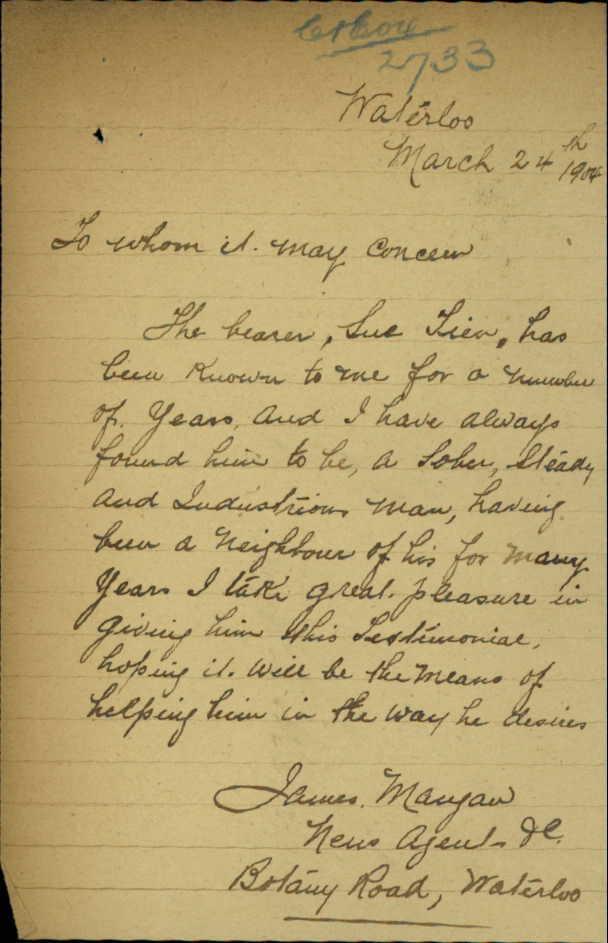 2733
Waterloo
March 24th 1904
To whom it may concern
The bearer, Sue Tien, has
been known to me for a number
of Years, and I have always
found him to be, a Sober, Steady
and Industrious man, having
been a Neighbour of his for many
Years I take great pleasure in
giving him this Testimonial,
hoping it will be the means of
helping him in the way he desires
James. Mangan
News Agent &c.
Botany Road, Waterloo